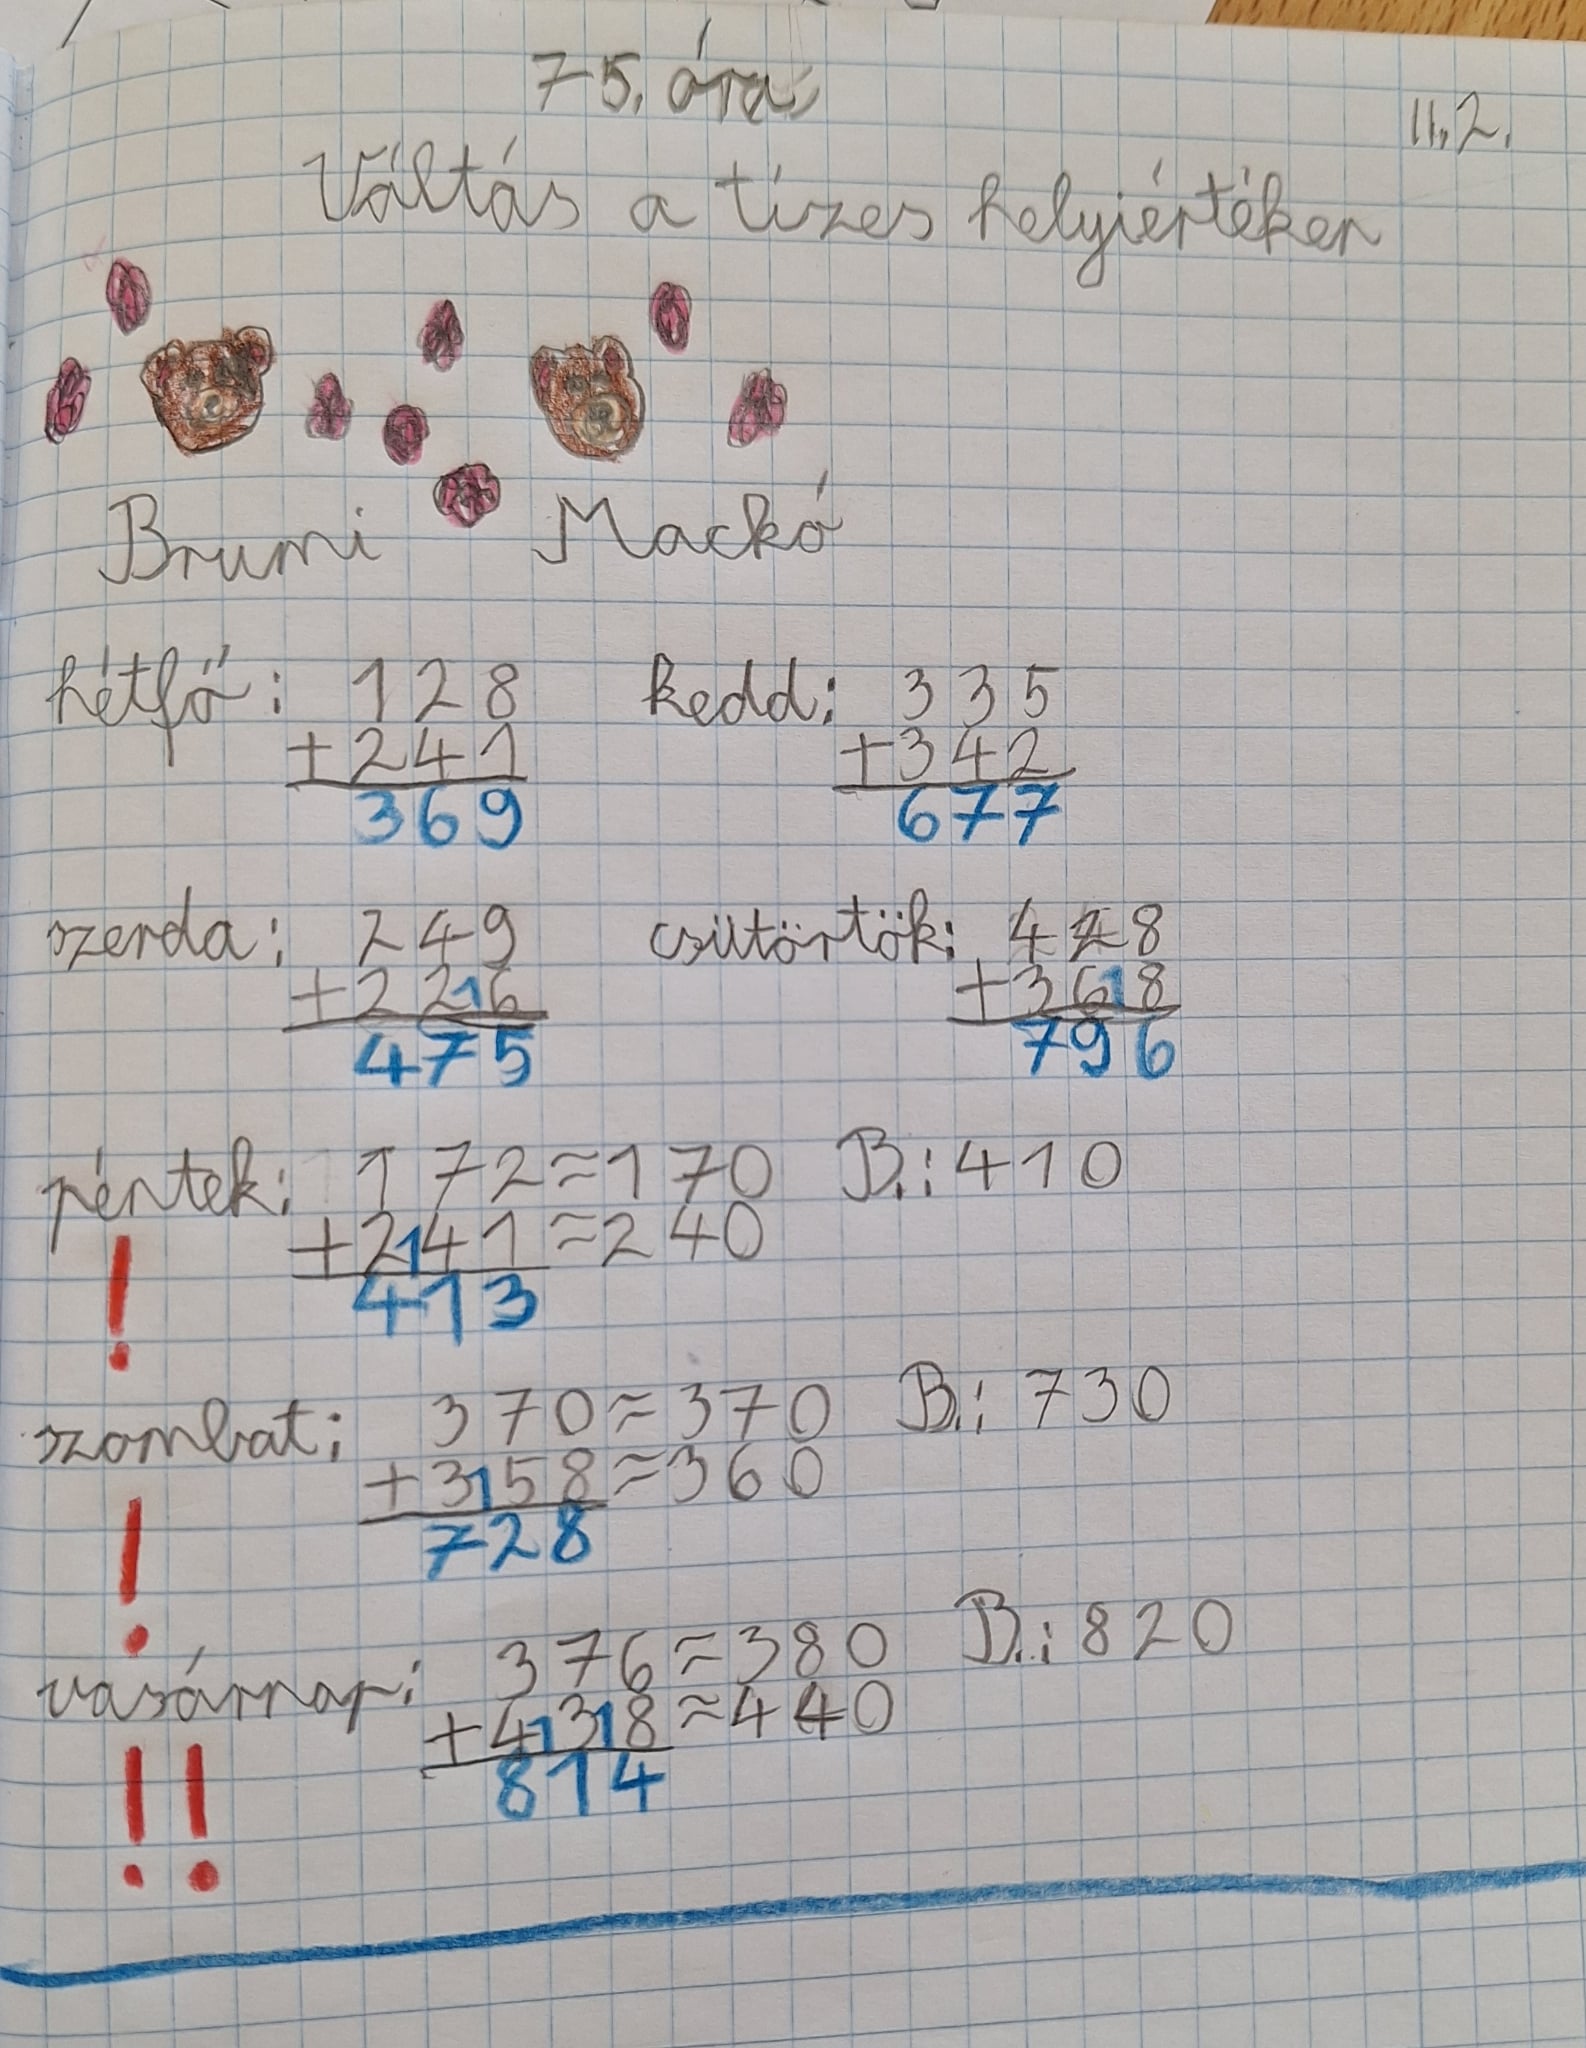 75. óra
II. 2.
Váltás a tízes helyiértéken
Brumi Mackó
hétfő: 128 kedd: 335
+241 +342
369 677
szerda: 249 csütörtök: 428
+2216 +3618
475 796
péntek: 172≈170 B.: 410
+2141≈240
413
!
szombat: 370≈370 B.: 730
+3158≈360
728
!
vasárnap: 376≈380 B.: 820
+41318≈440
814
!!